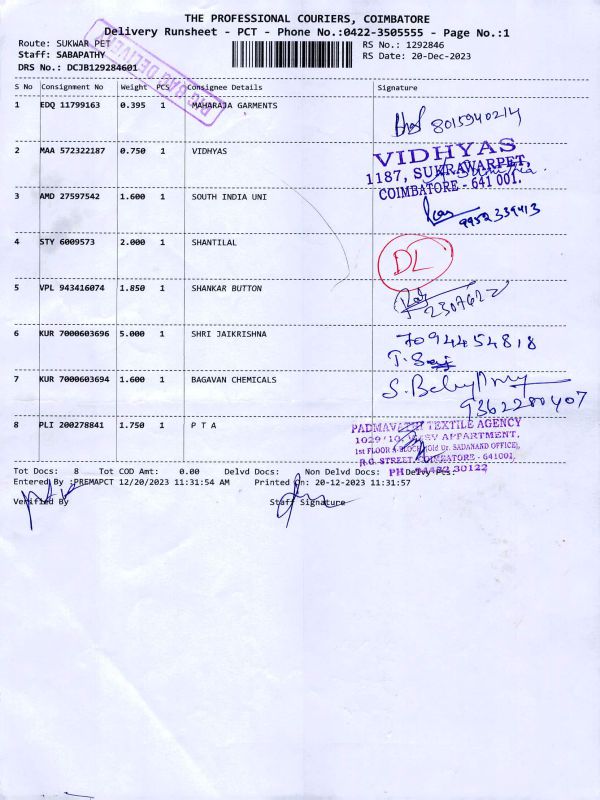 THE PROFESSIONAL COURIERS, COIMBATORE
Delivery Runsheet - PCT - Phone No.:0422-3505555 - Page No.:1
Route: SUKWAR PET
Staff: SABAPATHY
DRS No.: DCJB129284601
RS No.: 1292846
RS Date: 20-Dec-2023
S No Consignment No Weight PCS Consignee Details Signature
1 EDQ 11799163 0.395 1 MAHARAJA GARMENTS
8015940214
2 MAA 572322187 0.750 1 VIDHYAS
VIDHYAS
1187, SUKRAWARPET,
COIMBATORE - 641 001.
3 AMD 27597542 1.600 1 SOUTH INDIA UNI
9952339413
4 STY 6009573 2.000 1 SHANTILAL
DL
5 VPL 943416074 1.850 1 SHANKAR BUTTON
2307622
6 KUR 7000603696 5.000 1 SHRI JAIKRISHNA
7094454818
7 KUR 7000603694 1.600 1 BAGAVAN CHEMICALS
9362280407
8 PLI 200278841 1.750 1 P T A
PADMAVATHI TEXTILE AGENCY
APPARTMENT,
1st FLOOR (Old Dr. SADANAND OFFICE),
R.G. STREET, COIMBATORE - 641001,
Tot Docs: 8 Tot COD Amt: 0.00 Delvd Docs: Non Delvd Docs:
Entered By :PREMAPCT 12/20/2023 11:31:54 AM Printed On: 20-12-2023 11:31:57
Verified By Staff Signature